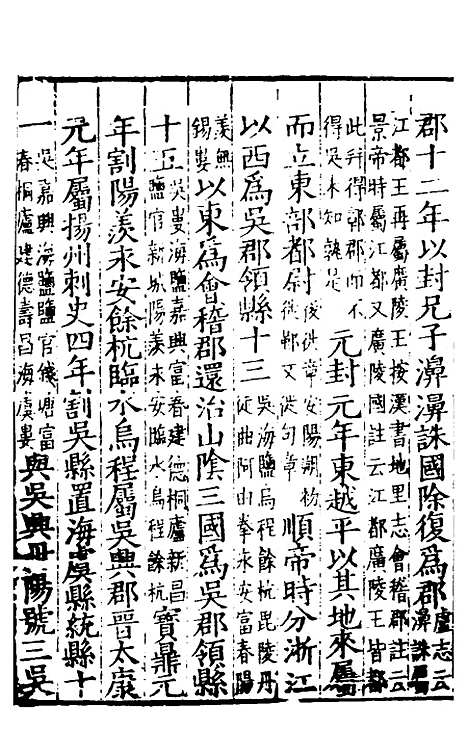 郡十二年以封兄子濞濞誅國除復爲郡盧志云濞誅屬
江都王再屬廣陵王按漢書地里志會稽郡註云
景帝時屬江都又廣陵國註云江都廣陵王皆都
此并得鄣郡而不
得吳未知孰是元封元年東越平以其地來屬
而立東部都尉後徙章安陽朔
徙鄞又徙句章順帝時分浙江
以西爲吳郡領縣十三吳海鹽烏程餘杭毗陵丹
徒曲阿由拳永安富春陽
羨無
錫婁以東爲會稽郡還治山陰三國爲吳郡領縣
十五吳婁海鹽嘉興富春建德桐廬新昌
鹽官新城陽羨永安臨水烏程餘杭寶鼎元
年割陽羨永安餘杭臨水烏程屬吳興郡晉太康
元年屬揚州刺史四年割吳縣置海虞縣統縣十
一吳嘉興海鹽鹽官錢塘富
春桐廬建德壽昌海虞婁與吳興丹陽號三吳